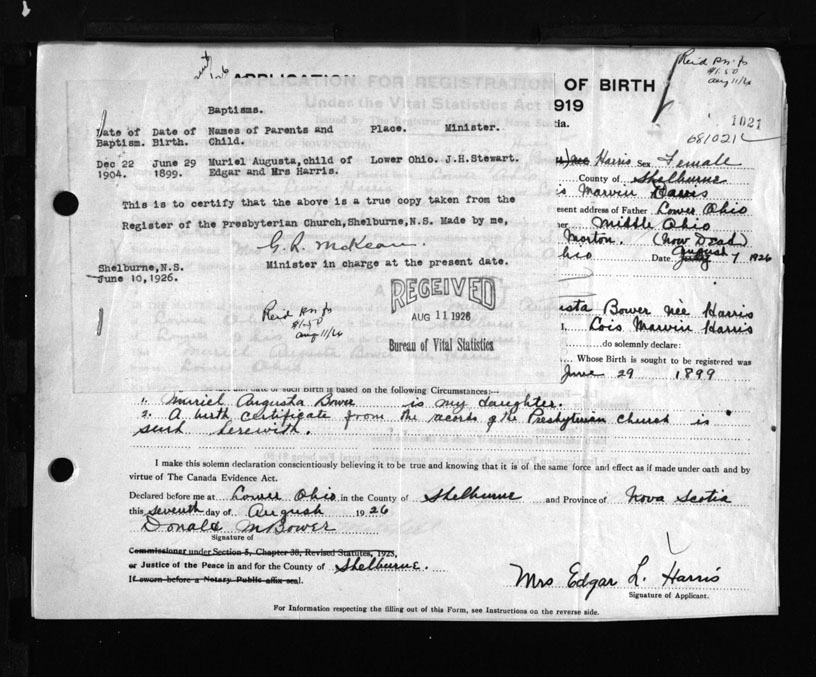 APPLICATION FOR REGISTRATION OF BIRTH
Under the Vital Statistics Act 1919
1021
681021
Baptisms.
Date of Date of Names of Parents and Place. Minister.
Baptism. Birth. Child.
Dec 22 June 29 Muriel Augusta, child of Lower Ohio. J.H.Stewart.
1904. 1899. Edgar and Mrs Harris.
This is to certify that the above is a true copy taken from the
Register of the Presbyterian Church,Shelburne,N.S. Made by me,
G. R. McKean.
Shelburne,N.S. Minister in charge at the present date.
June 10,1926.
RECEIVED
AUG 11 1926
Bureau of Vital Statistics
Aug 11/26
Aug 11/26
Harris Sex Female
County of Shelburne
Marvin Harris
present address of Father Lower Ohio
Middle Ohio
Morton. (Now Dead)
Date August 7 1926
Bower nèe Harris
I, Lois Marvin Harris
do solemnly declare:
Whose Birth is sought to be registered was
June 29 1899
such Birth is based on the following Circumstances:—
1. Muriel Augusta Bower is my daughter.
2. A birth certificate from the records of the Presbyterian Church is
send herewith.
I make this solemn declaration conscientiously believing it to be true and knowing that it is of the same force and effect as if made under oath and by
virtue of The Canada Evidence Act.
Declared before me at Lower Ohio, in the County of Shelburne and Province of Nova Scotia
this seventh day of August 1926
Donald M Bower
Signature of
Commissioner under Section 5, Chapter 38, Revised Statutes, 1923,
or Justice of the Peace in and for the County of Shelburne.
If sworn before a Notary Public affix seal.
Mrs Edgar L. Harris
Signature of Applicant.
For Information respecting the filling out of this Form, see Instructions on the reverse side.